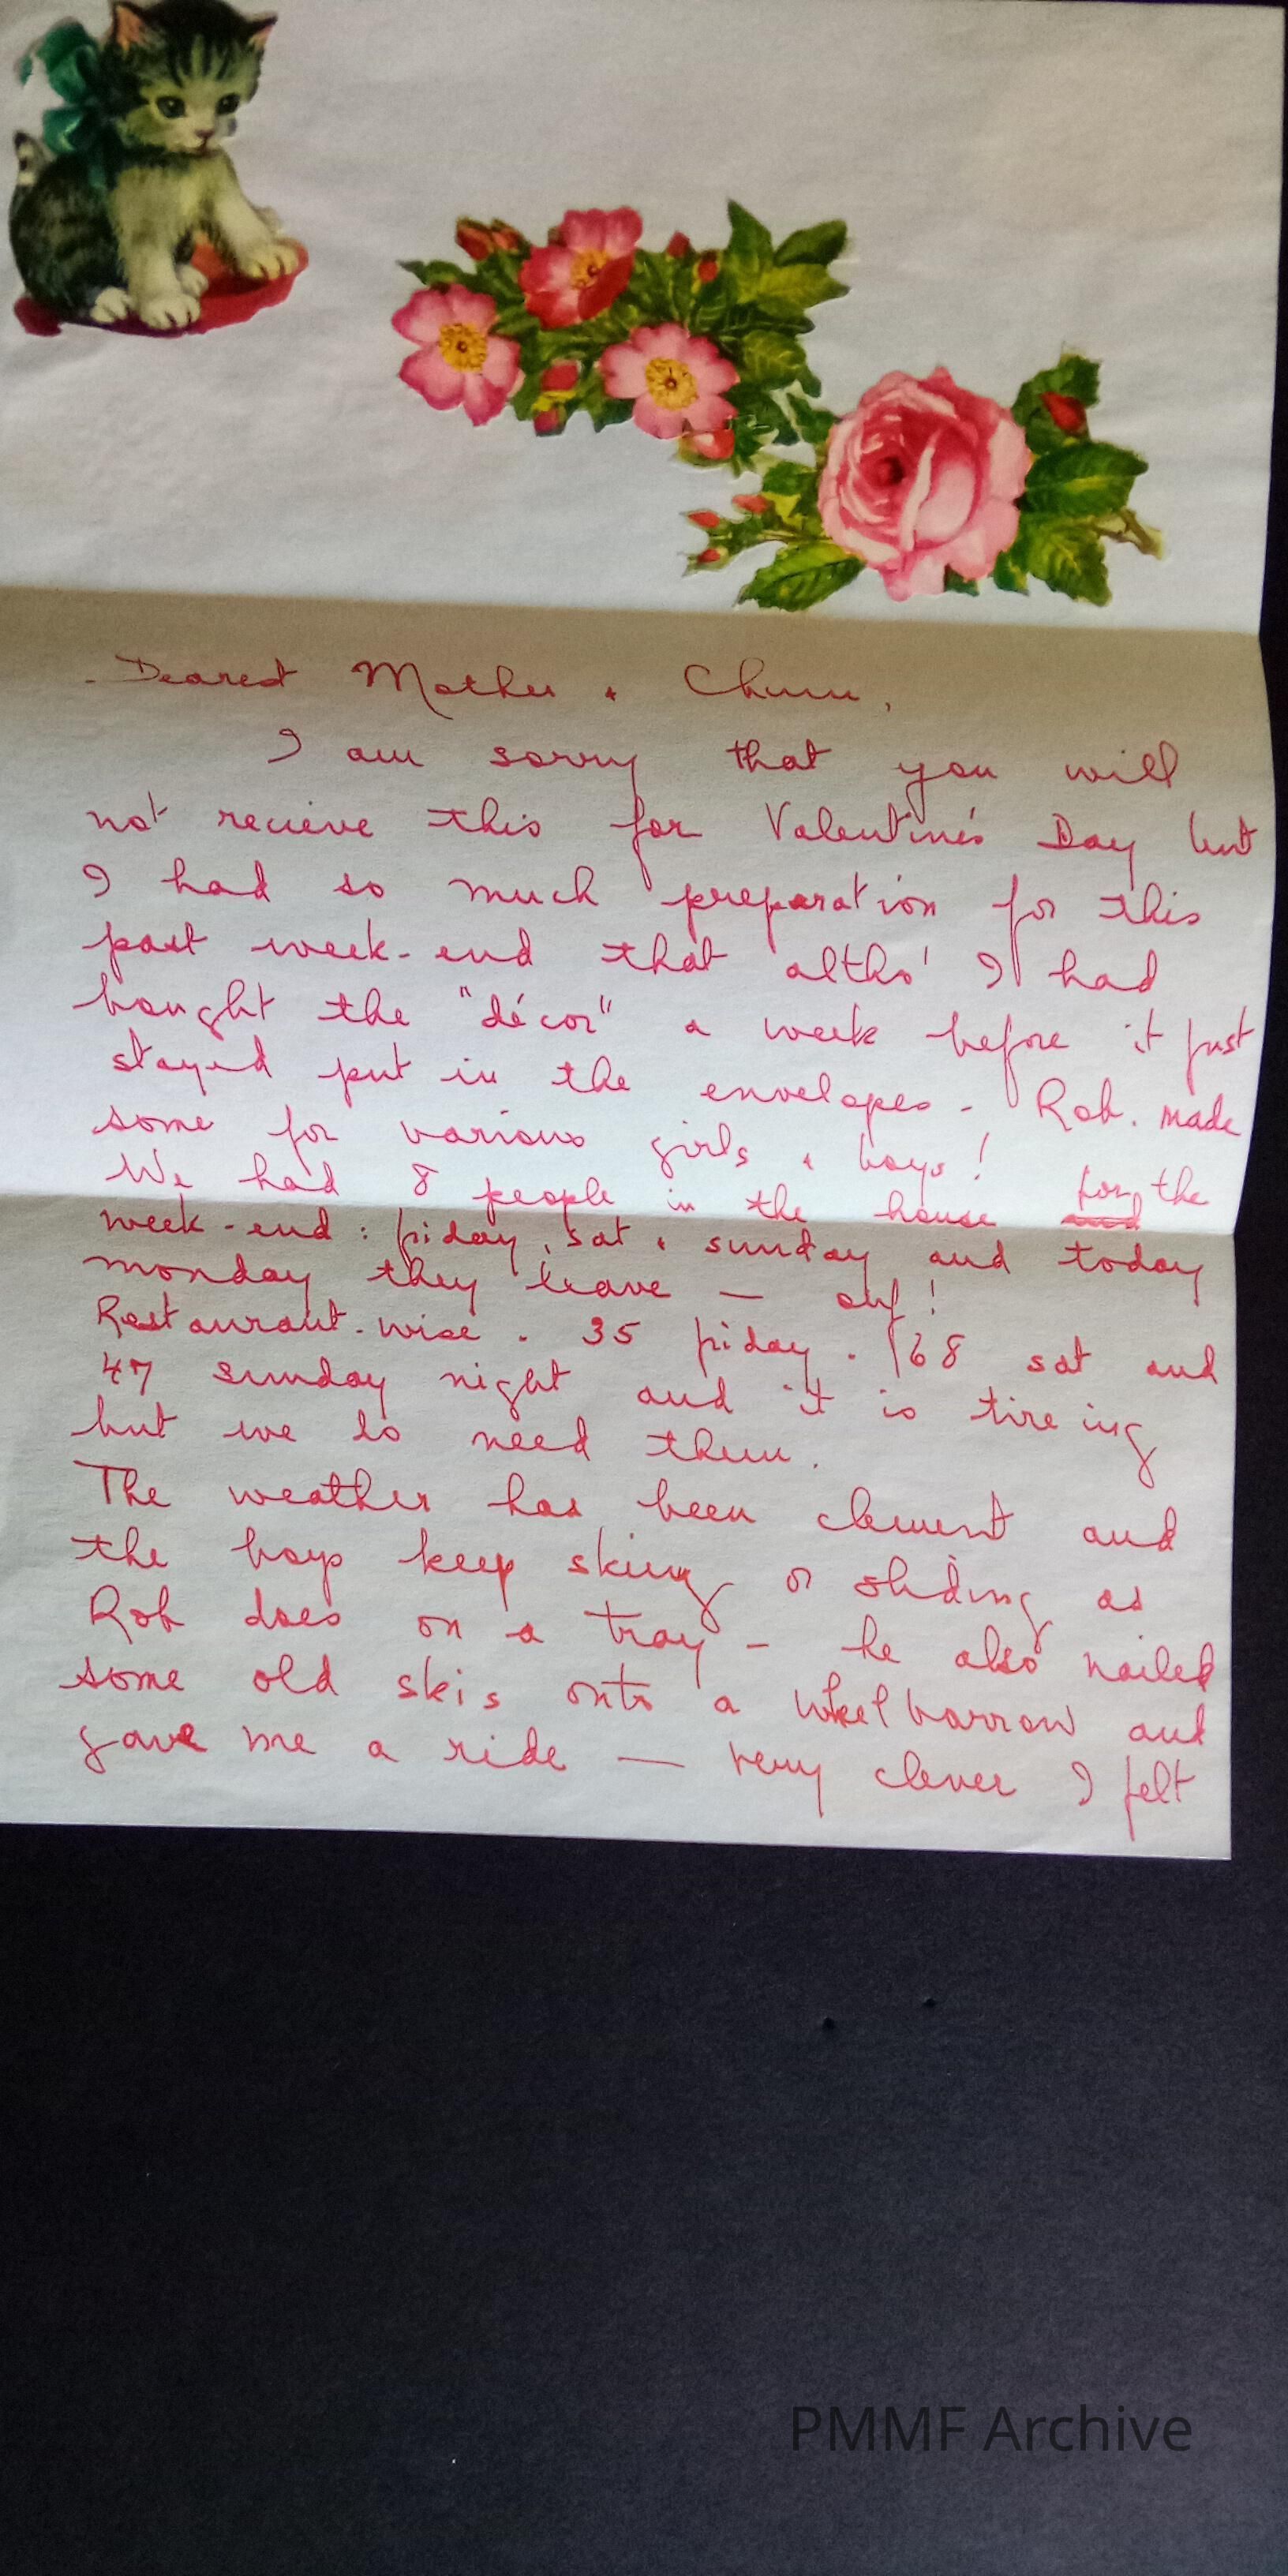 Dearest Mother + Chum,
I am sorry that you will
not recieve this for Valentine's Day but
I had so much preparation for this
past week-end that altho' I had
bought the "décor" a week before it just
stayed put in the envelopes - Rob. made
some for various girls + boys!
We had 8 people in the house and for the
week-end: friday, sat + sunday and today
monday they leave — ouf!
Restaurant-wise. 35 friday. 68 sat and
47 sunday night and it is tireing
but we do need them.
The weather has been clement and
the boys keep skiing or sliding as
Rob does on a tray - he also nailed
some old skis onto a wheelbarrow and
gave me a ride — very clever I felt
PMMF Archive